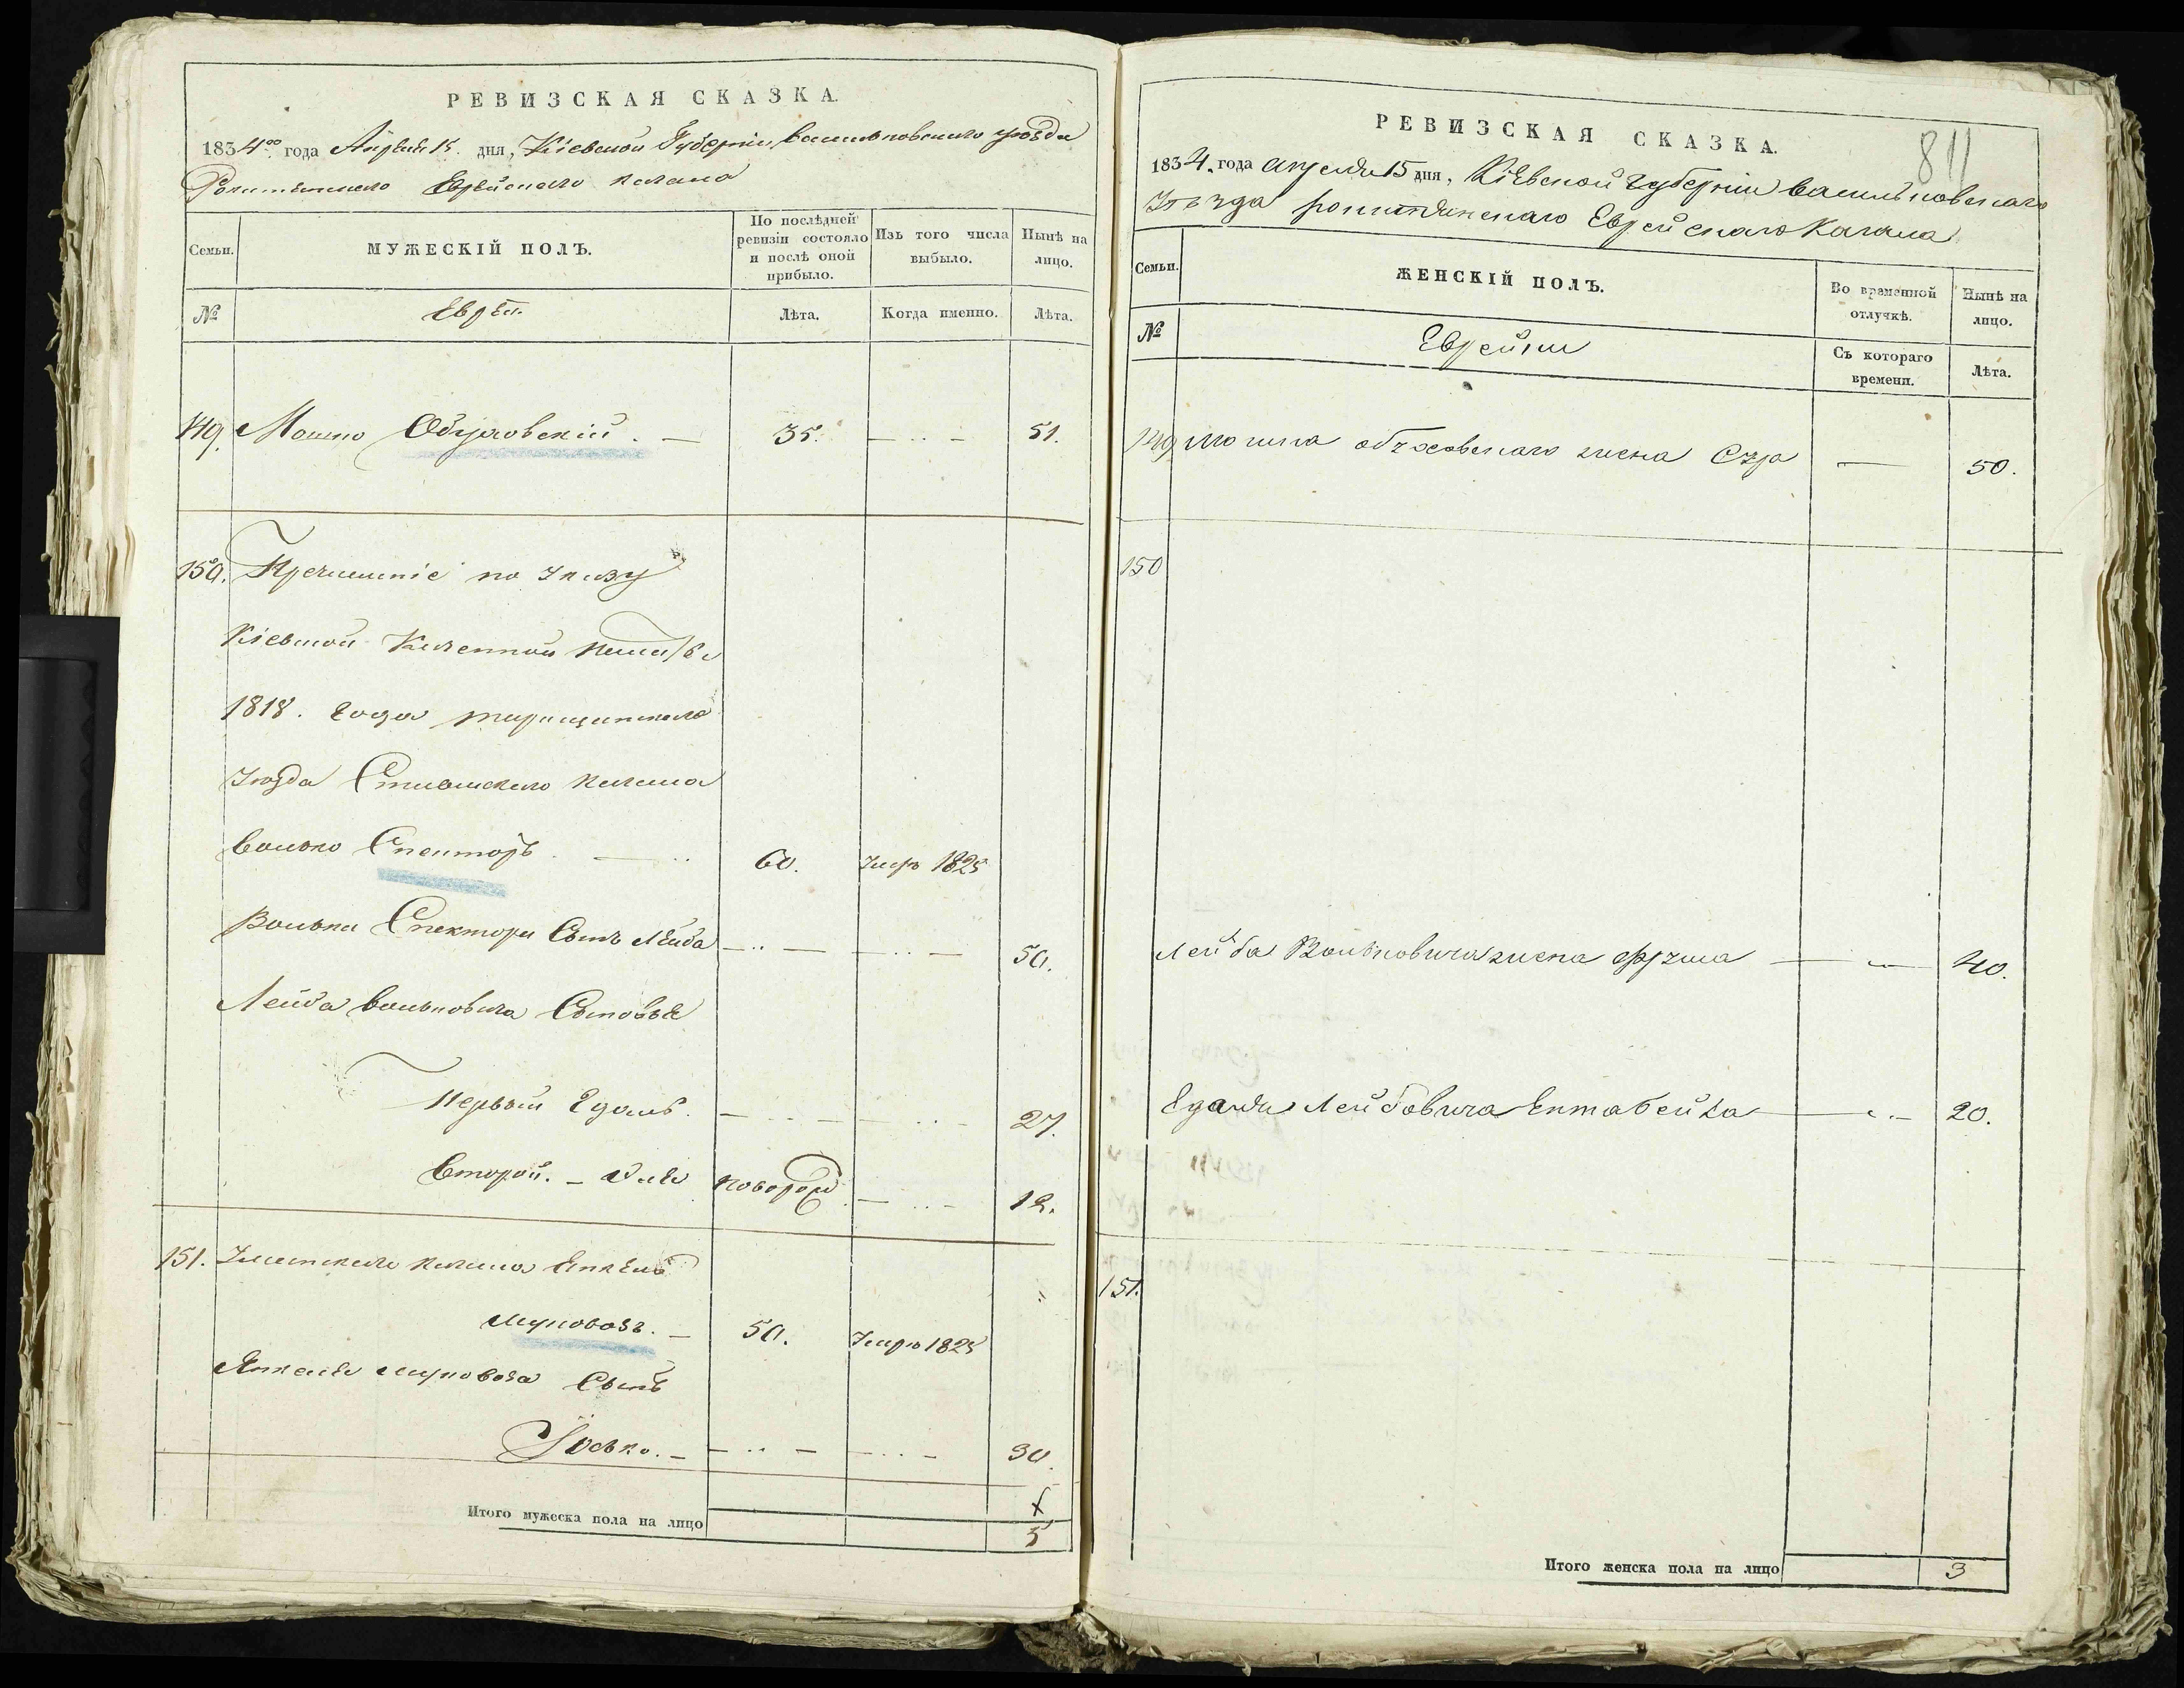 РЕВИЗСКАЯ СКАЗКА.
1834го года Апреля 15 дня, Кіевской Губерніи, васильковскаго уѣзда
Рокитянскаго Еврейскаго кагала
Семьи.
МУЖЕСКІЙ ПОЛЪ.
По послѣдней ревизіи состояло и послѣ оной прибыло.
Изъ того числа выбыло.
Нынѣ на лицо.
№
Евреи.
Лѣта.
Когда именно.
Лѣта.
149. Мошко Обуховскій. — 35. — .. — 51.
150. по Указу
Кіевской Казенной
1818. года таращанскаго
Уѣзда кагала
волько Спекторъ. — .. 60. умръ 1825
Волька Спектора Сынъ Лейба — .. — — .. — 50.
Лейба вольковича Сыновья
Первый Едаль. — .. — — .. — 27.
второй. — новорож — .. — 12.
151. кагала Янкель
Муховозъ. — 50. Умръ 1825
Янкеля муховоза Сынъ
Іосько. — — .. — — .. — 30.
Итого мужеска пола на лицо
5
РЕВИЗСКАЯ СКАЗКА.
811
1834. года апреля 15 дня, Кіевской губерніи васильковскаго
Уѣзда рокитянскаго Еврейскаго Кагала
Семьи.
ЖЕНСКІЙ ПОЛЪ.
Во временной отлучкѣ.
Нынѣ на лицо.
№
Еврейки
Съ котораго времени.
Лѣта.
149 мошка обуховскаго жена Сура — 50.
150
Лейба Вольковича жена фрума — 40.
Едаля Лейбовича Ентабейла — 20.
151.
Итого женска пола на лицо 3